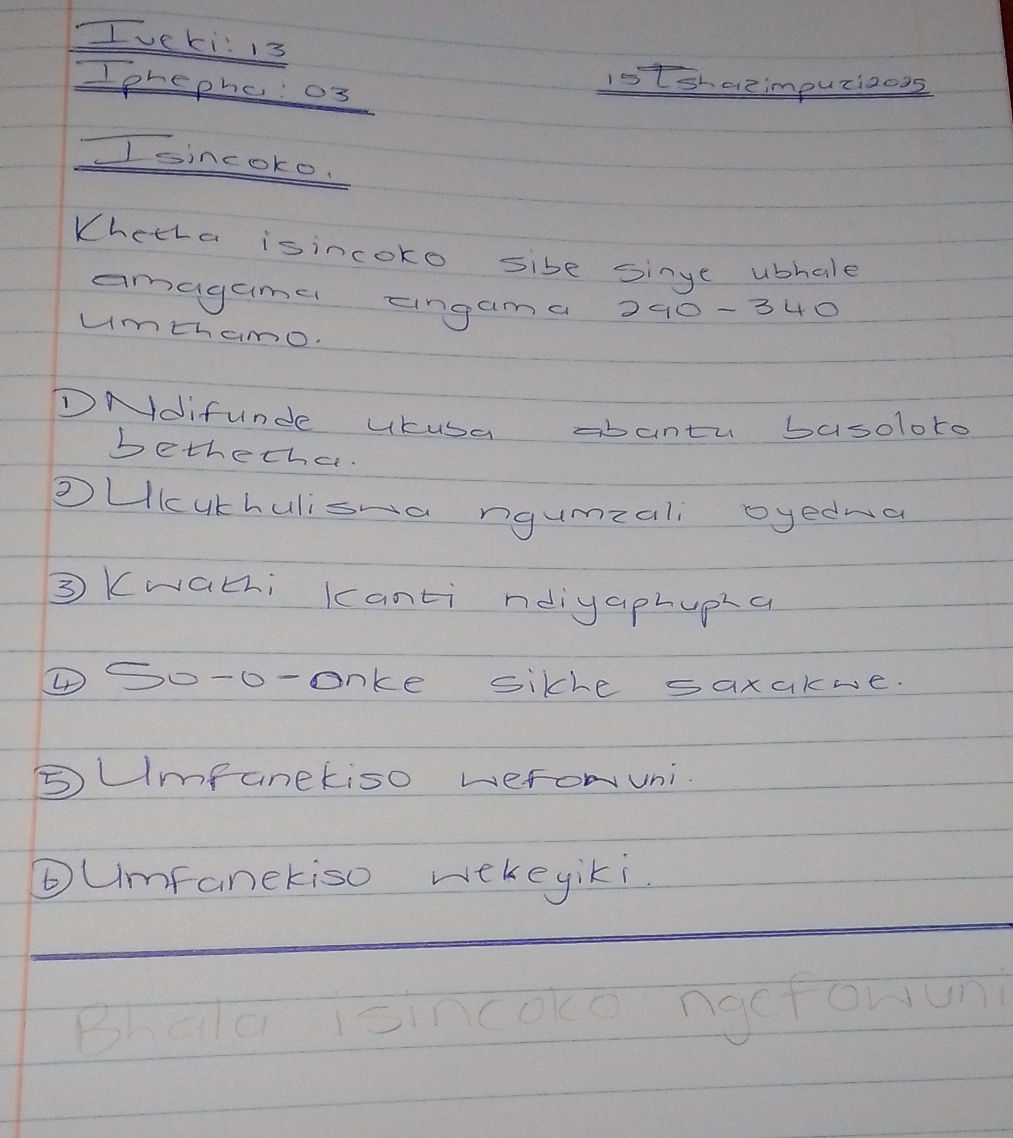 Iveki: 13
Iphepha: 03
15 Tshazimpuzi 2025
Isincoko.
Khetha isincoko sibe sinye ubhale
amagama angama 290 - 340
umthamo.
1) Ndifunde ukuba abantu basoloko
bethetha.
2) Ukukhuliswa ngumzali oyedwa
3) Kwathi kanti ndiyaphupha
4) So-o-onke sikhe saxakwe.
5) Umfanekiso wefowuni.
6) Umfanekiso wekeyiki.
Bhala isincoko ngefowuni